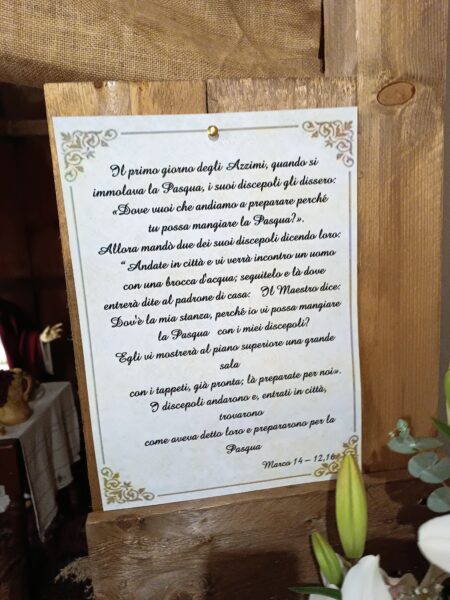 Il primo giorno degli Azzimi, quando si
immolava la Pasqua, i suoi discepoli gli dissero:
«Dove vuoi che andiamo a preparare perché
tu possa mangiare la Pasqua?».
Allora mandò due dei suoi discepoli dicendo loro:
“ Andate in città e vi verrà incontro un uomo
con una brocca d'acqua; seguitelo e là dove
entrerà dite al padrone di casa: Il Maestro dice:
Dov'è la mia stanza, perché io vi possa mangiare
la Pasqua con i miei discepoli?
Egli vi mostrerà al piano superiore una grande
sala
con i tappeti, già pronta; là preparate per noi».
I discepoli andarono e, entrati in città,
trovarono
come aveva detto loro e prepararono per la
Pasqua
Marco 14 – 12,16